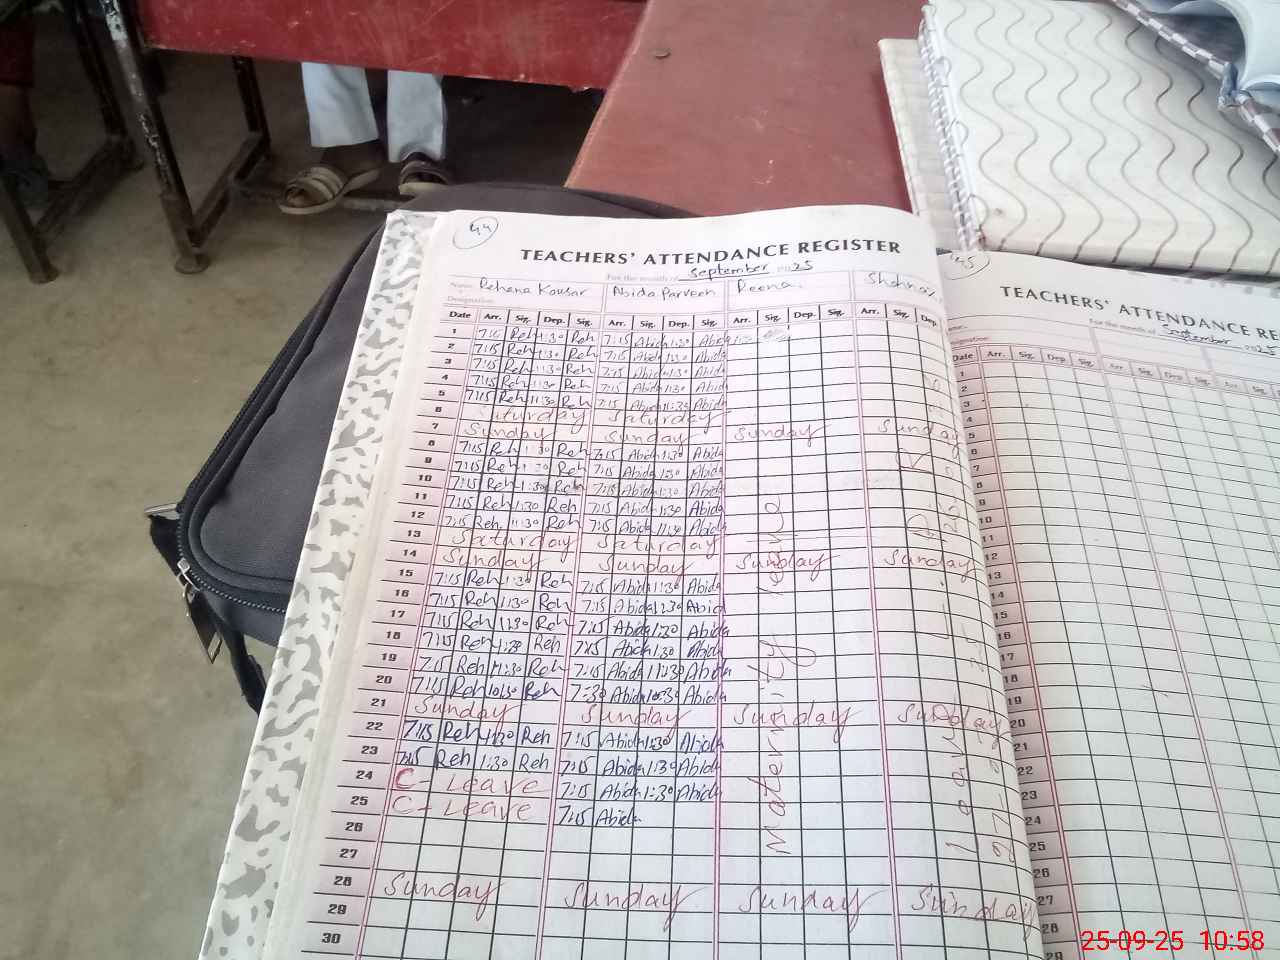 44
TEACHERS' ATTENDANCE REGISTER
For the month of September 2025
Name Rehana Kousar Abida Parveen Reena
Designation
Date Arr. Sig. Dep. Sig. Arr. Sig. Dep. Sig. Arr. Sig. Dep. Sig. Arr. Sig. Dep.
1 7:15 Reh 1:30 Reh 7:15 Abida 1:30 Abida
2 7:15 Reh 1:30 Reh 7:15 Abida 1:30 Abida
3 7:15 Reh 1:30 Reh 7:15 Abida 1:30 Abida
4 7:15 Reh 1:30 Reh 7:15 Abida 1:30 Abida
5 7:15 Reh 11:30 Reh 7:15 Abida Abida
6 Saturday Saturday
7 Sunday Sunday Sunday Sunday
8 7:15 Reh 1:30 Reh 7:15 Abida 1:30 Abida
9 7:15 Reh 1:30 Reh 7:15 Abida 1:30 Abida
10 7:15 Reh 1:30 Reh 7:15 Abida 1:30 Abida
11 7:15 Reh 1:30 Reh 7:15 Abida 1:30 Abida
12 7:15 Reh 11:30 Reh 7:15 Abida 11:30 Abida
13 Saturday Saturday
14 Sunday Sunday Sunday Sunday
15 7:15 Reh 1:30 Reh 7:15 Abida 1:30 Abida
16 7:15 Reh 1:30 Reh 7:15 Abida 1:30 Abida
17 7:15 Reh 1:30 Reh 7:15 Abida 1:30 Abida
18 7:15 Reh 1:30 Reh 7:15 Abida 1:30 Abida
19 7:15 Reh 11:30 Reh 7:15 Abida 11:30 Abida
20 7:15 Reh 10:30 Reh 7:30 Abida 10:30 Abida
21 Sunday Sunday Sunday Sunday
22 7:15 Reh 1:30 Reh 7:15 Abida 1:30 Abida
23 7:15 Reh 1:30 Reh 7:15 Abida 1:30 Abida
24 C- Leave 7:15 Abida 1:30 Abida
25 C- Leave 7:15 Abida
26
27
28 Sunday Sunday Sunday Sunday
29
30
Maternity leave
45
TEACHERS' ATTENDANCE RE
For the month of September 2025
Name
Designation
Date Arr. Sig. Dep. Sig. Arr. Sig. Dep. Sig. Arr. Sig.
1
2
3
4
5
6
7
8
9
10
11
12
13
14
15
16
17
18
19
20
21
22
23
24
25
26
27
28
29
25-09-25 10:58